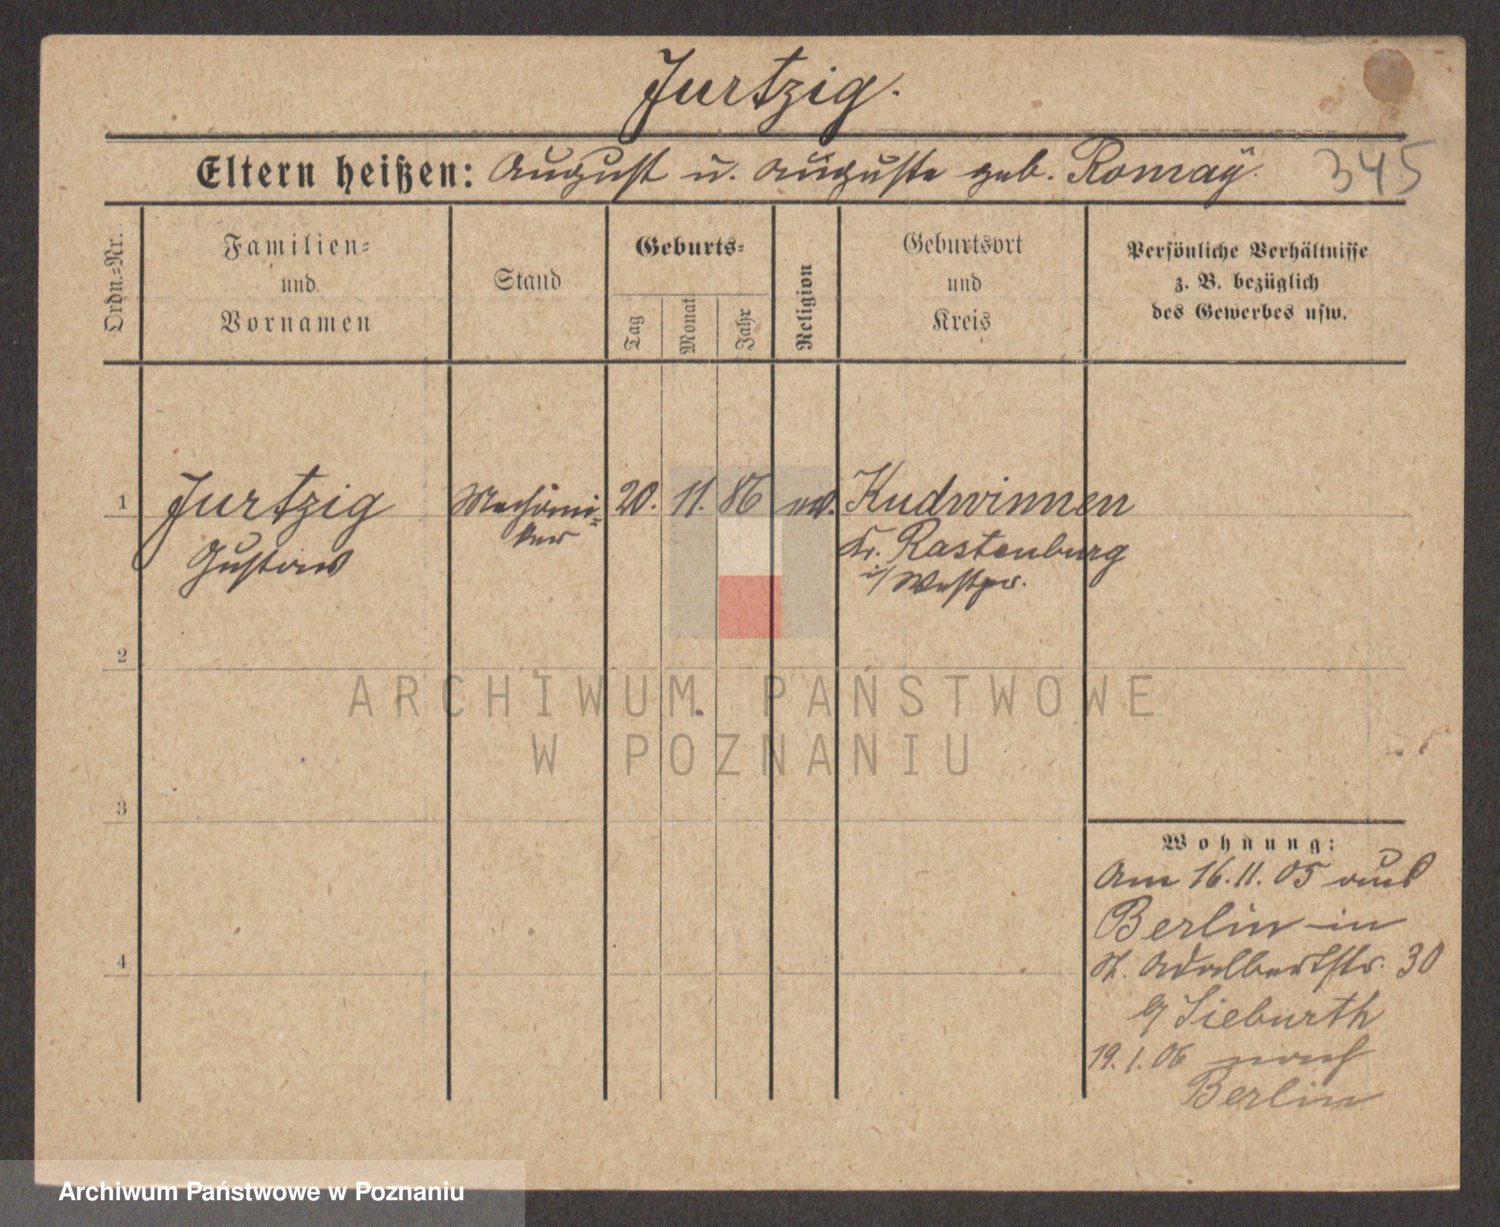 Jurtzig.
Eltern heißen: August u. Auguste geb. Romaÿ. 345
Ordn.=Nr.
Familien=
und
Vornamen
Stand
Geburts=
Tag
Monat
Jahr
Religion
Geburtsort
und
Kreis
Persönliche Verhältnisse
z. B. bezüglich
des Gewerbes usw.
1 Jurtzig Mechani= 20. 11. 86 ev. Kudwinnen
Gustav ker Kr. Rastenburg
i/ Westpr.
2
ARCHIWUM PAŃSTWOWE
W POZNANIU
3
4
Wohnung:
Am 16.11.05 aus
Berlin in
St. Adalbertstr. 30
b/ Sieburth
19.1.06 nach
Berlin
Archiwum Państwowe w Poznaniu